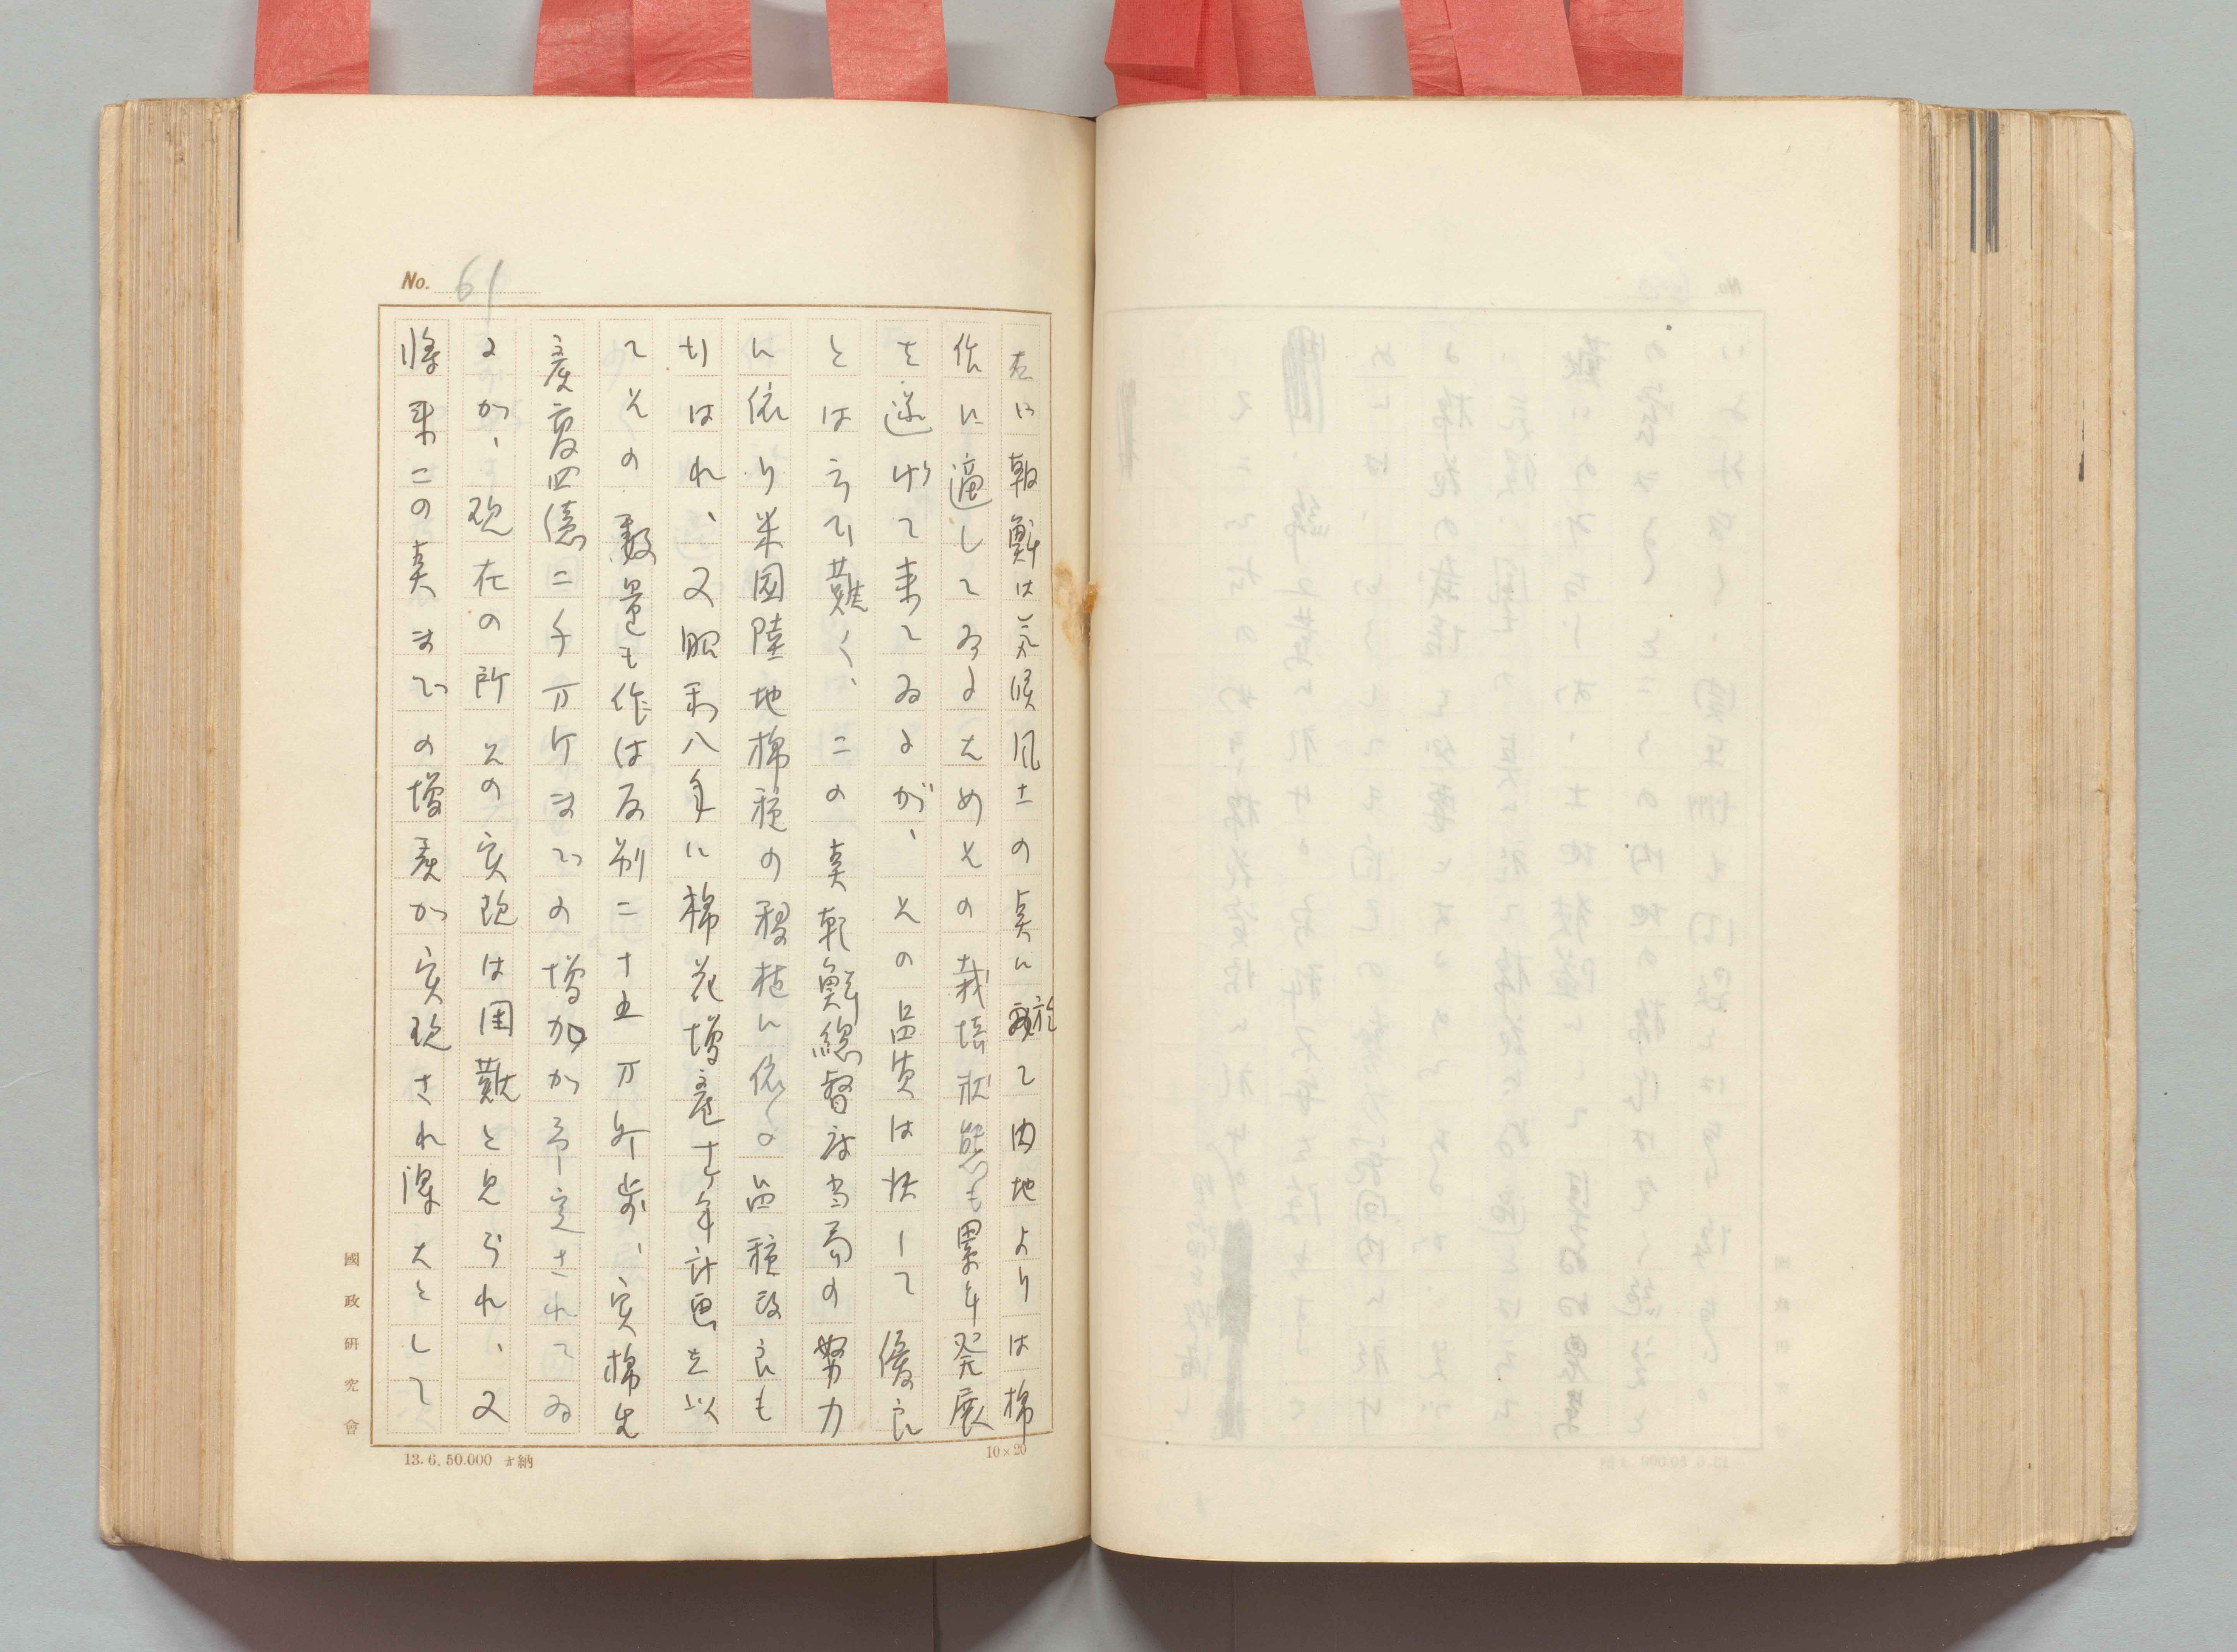 No. 61
左に朝鮮は気候風土の点に於て内地よりは棉
作に適してゐるためその栽培状態も累年発展
を遂げて来てゐるが、その品質は決して優良
とは云ひ難く、この点朝鮮総督府当局の努力
に依り米国陸地棉種の移植に依る品種改良も
行はれ、又昭和八年に棉花増産十ヶ年計画を以
てその数量も作付反別二十五万町歩、実棉生
産高四億二千万斤までの増加が予定されてゐ
るが、現在の所その実現は困難と見られ、又
將来この点までの増産が実現され得たとして
國政研究會
13.6.50.000 納
10×20